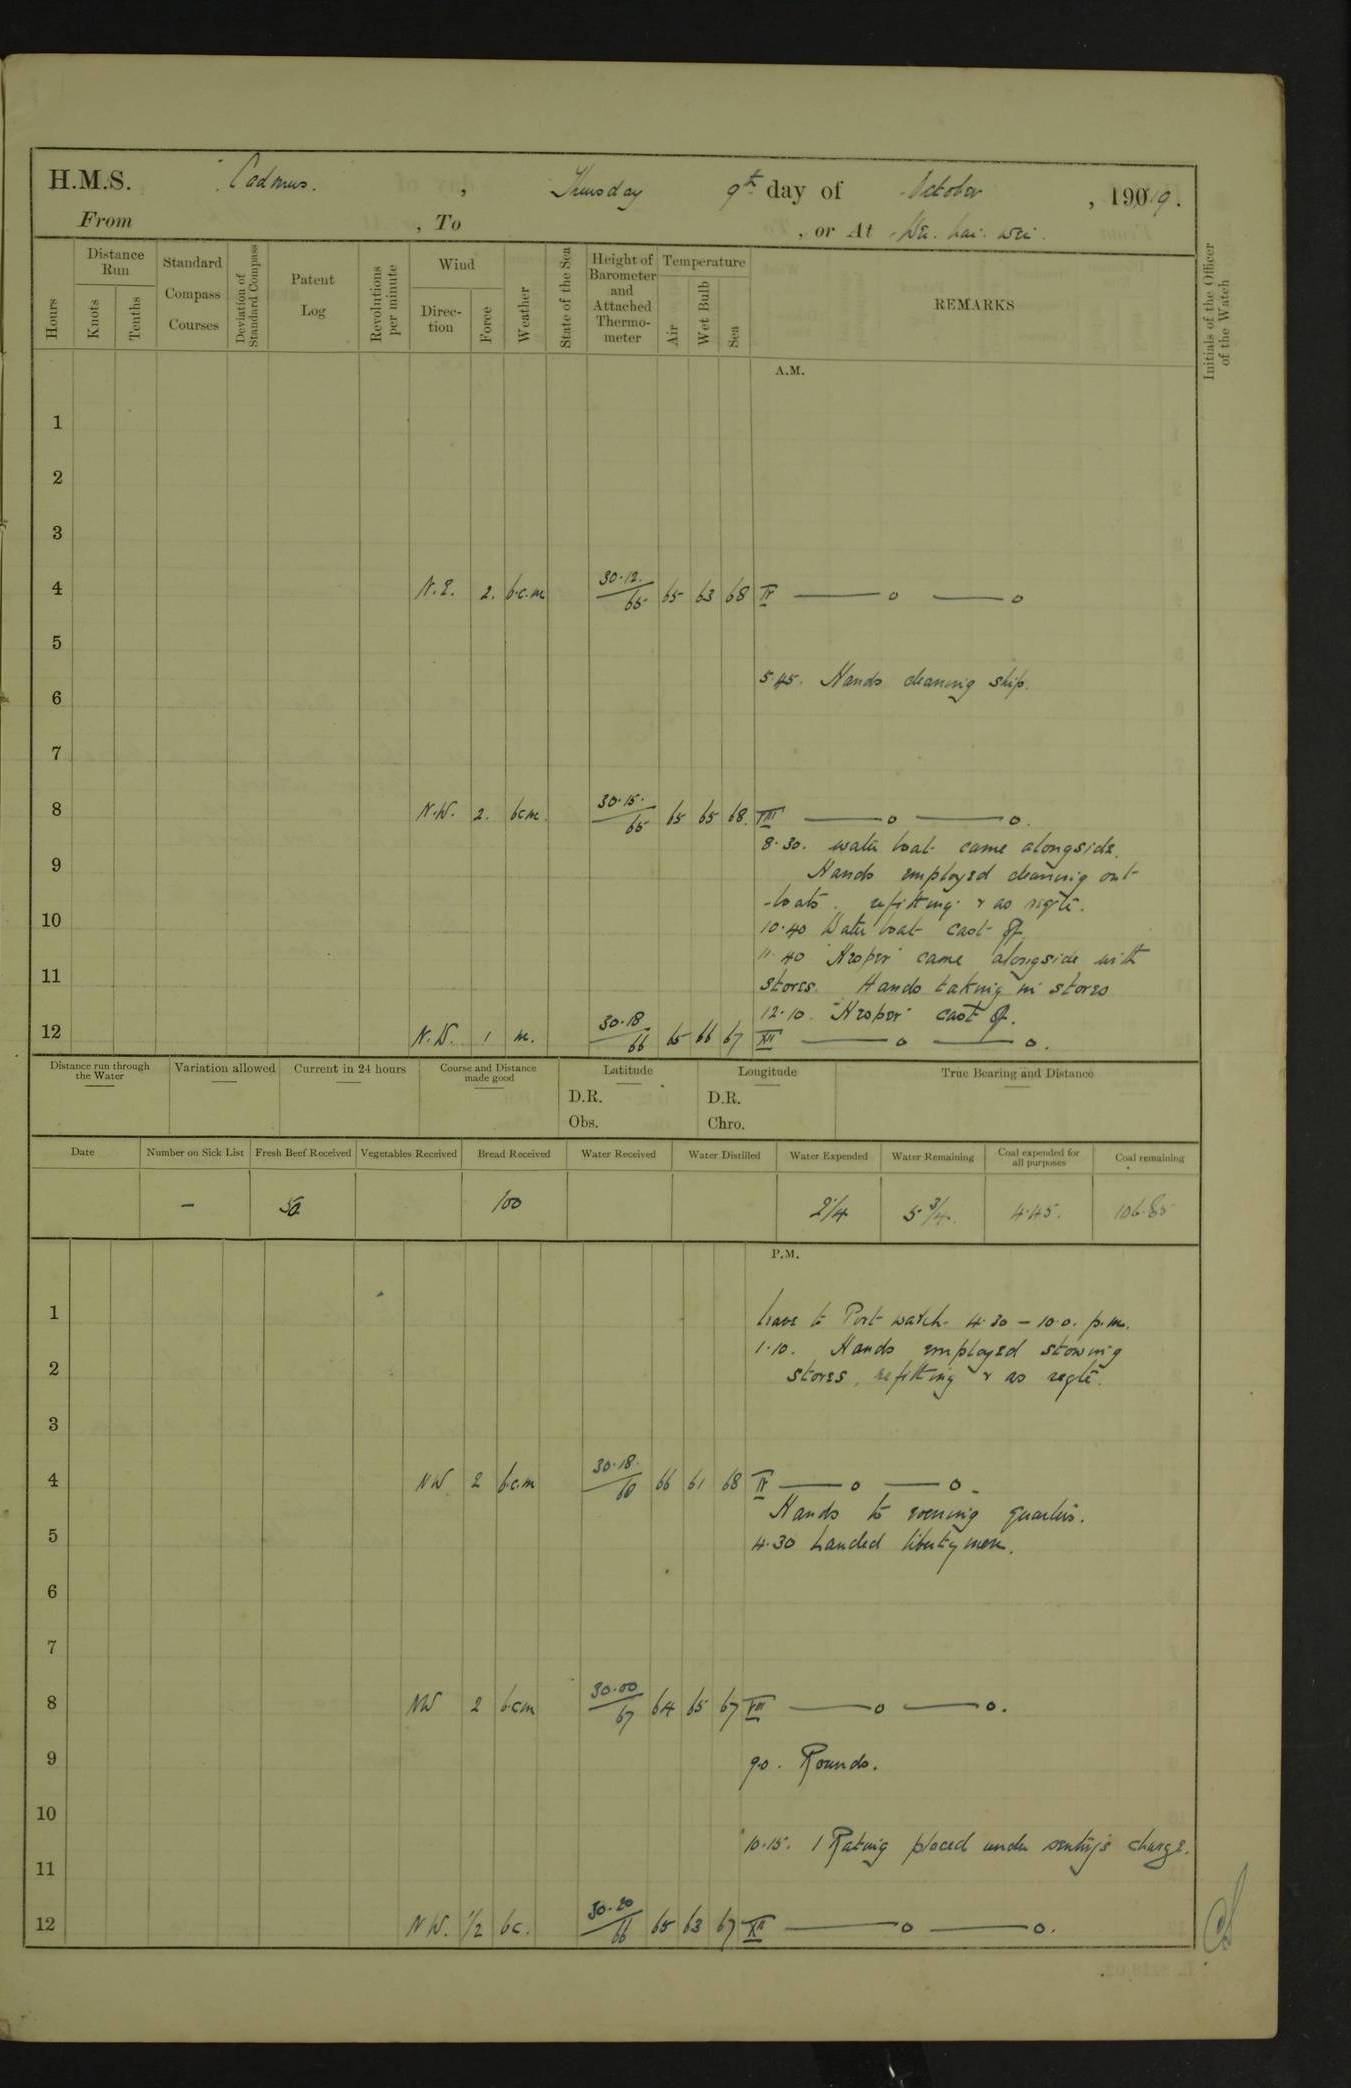 H.M.S. Cadmus. , Thursday 9th day of October , 1919.
From , To , or At Wei. hai. wei.
Hours
Distance Run
Knots
Tenths
Standard Compass Courses
Deviation of Standard Compass
Patent Log
Revolutions per minute
Wind
Direction
Force
Weather
State of the Sea
Height of Barometer and Attached Thermometer
Temperature
Air
Wet Bulb
Sea
REMARKS
Initials of the Officer of the Watch
A.M.
1
2
3
4 N.E. 2. b.c.m 30.12./65 65 63 68 IV —— o —— o
5
5.45. Hands cleaning ship.
6
7
8 N.W. 2. bcm. 30.15./65 65 65 68. VIII —— o —— o.
8.30. water boat came alongside.
9 Hands employed cleaning out
-boats. refitting & as reqte.
10 10.40 Water boat cast off.
11.40 "Keoper" came alongside with
11 stores. Hands taking in stores
12.10. "Keoper" cast off.
12 N.W. 1 m. 30.18/66 65 66 67 XII —— o —— o.
Distance run through the Water
Variation allowed
Current in 24 hours
Course and Distance made good
Latitude
D.R.
Obs.
Longitude
D.R.
Chro.
True Bearing and Distance
Date
Number on Sick List
Fresh Beef Received
Vegetables Received
Bread Received
Water Received
Water Distilled
Water Expended
Water Remaining
Coal expended for all purposes
Coal remaining
– 50 100 2¼ 5¾. 4.45. 106.85
P.M.
1 Leave to Port watch 4.30 – 10.0. p.m.
1.10. Hands employed stowing
2 stores, refitting & as reqte.
3
4 NW. 2 b.c.m 30.18./68 66 61 68 IV —— o —— o.
Hands to evening quarters.
5 4.30 Landed liberty men.
6
7
8 NW 2 bcm 30.00/67 64 65 67 VIII —— o —— o.
9 9.0. Rounds.
10
10.15. 1 Rating placed under sentry's charge.
11
12 NW. 1/2 bc. 30.20/66 65 63 67 XII —— o —— o.